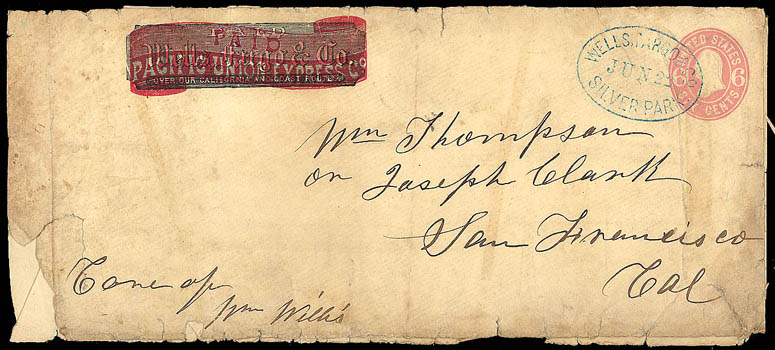 PAID
Wells, Fargo & Co.
PACIFIC UNION EXPRESS Co
OVER OUR CALIFORNIA AND COAST ROUTES
WELLS, FARGO & Co
JUN 22
SILVER PARK
UNITED STATES
6 6
SIX CENTS
Wm Thompson
or Joseph Clark
San Francisco
Cal
Care of
Wm Wills